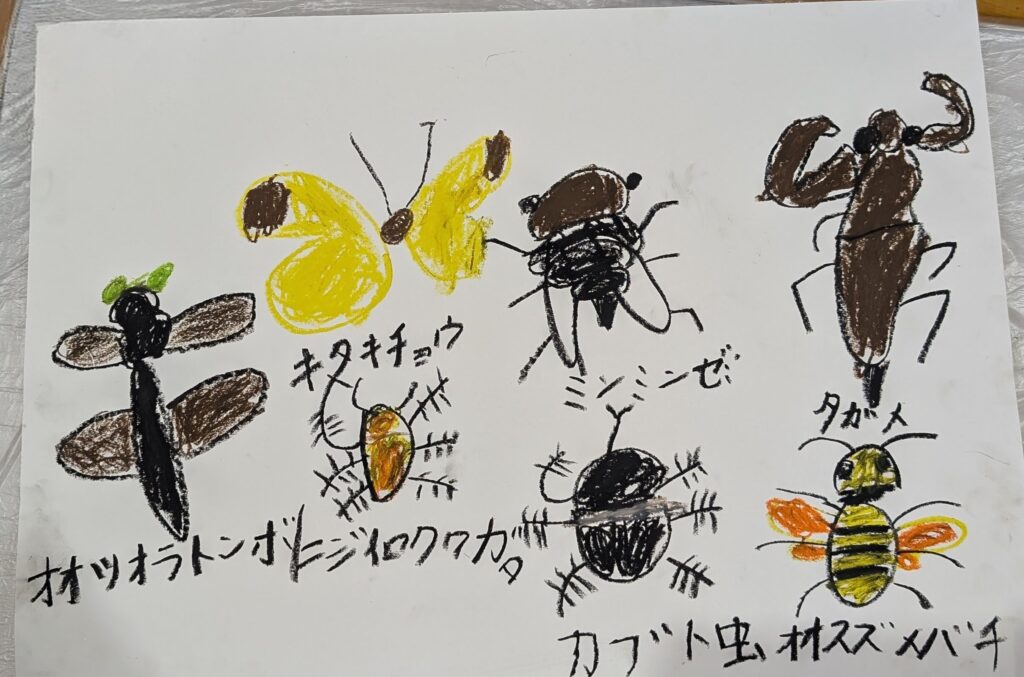 キタキチョウ
ミンミンゼ
タガメ
オオツオラトンボ
ニジイロクワガタ
カブト虫
オオスズメバチ